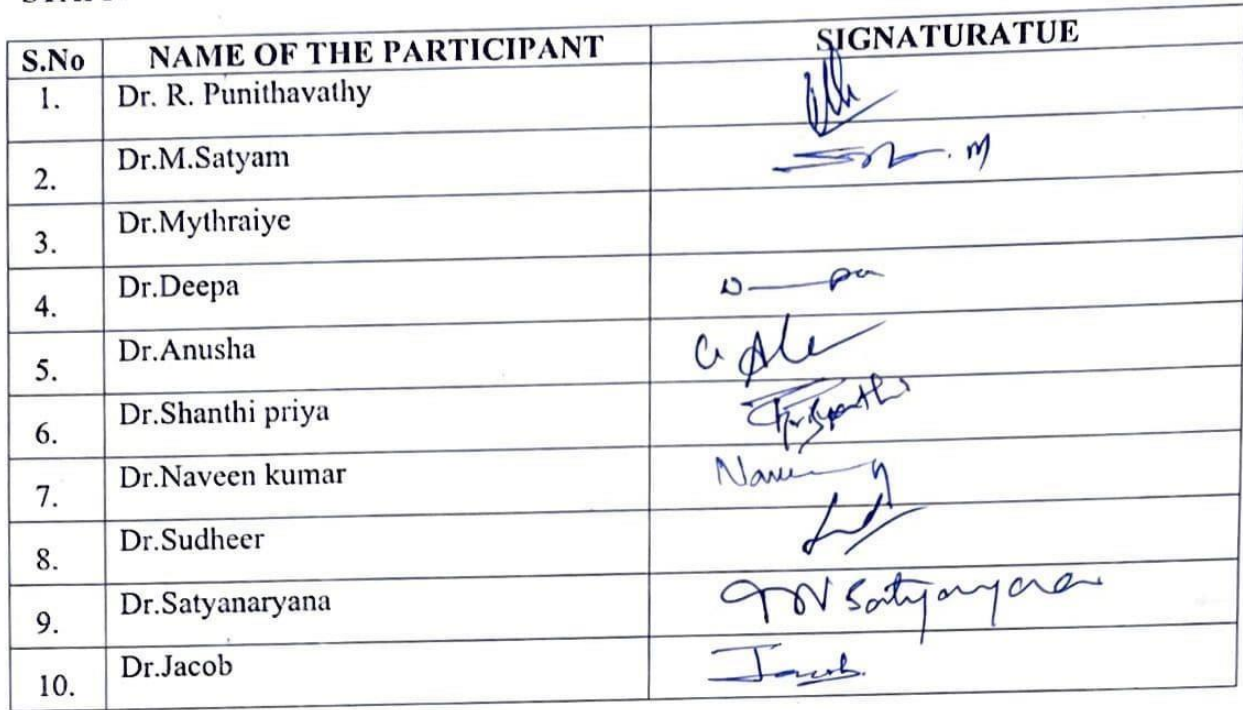 S.No NAME OF THE PARTICIPANT SIGNATURATUE
1. Dr. R. Punithavathy
2. Dr.M.Satyam
3. Dr.Mythraiye
4. Dr.Deepa
5. Dr.Anusha
6. Dr.Shanthi priya
7. Dr.Naveen kumar
8. Dr.Sudheer
9. Dr.Satyanaryana
10. Dr.Jacob Jacob